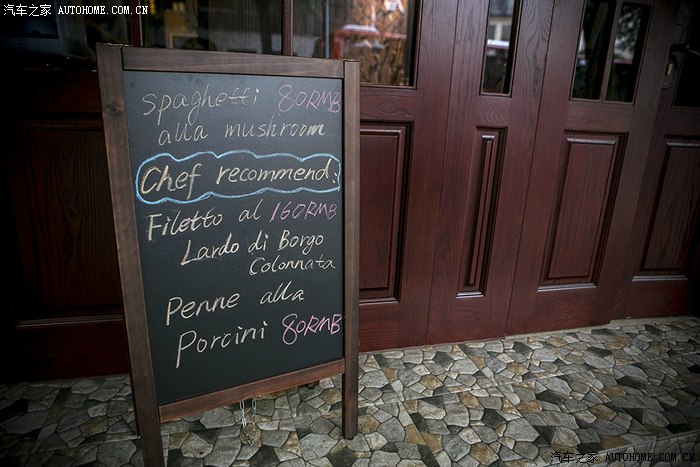 汽车之家 | AUTOHOME.COM.CN
spaghetti 80RMB
alla mushroom
Chef recommend:
Filetto al 160RMB
Lardo di Borgo
Colonnata
Penne alla
Porcini 80RMB
汽车之家 | AUTOHOME.COM.CN